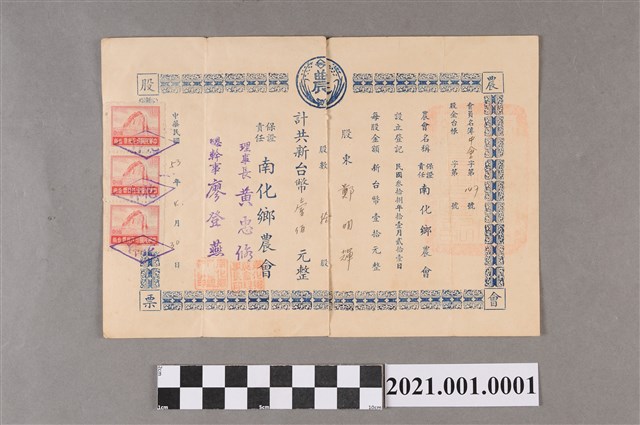 農會股票
農
會員名簿 字第 號
股金台帳 字第 號
農會名稱 保證責任南化鄉農會
設立登記 民國叁拾捌年拾壹月貳拾壹日
每股金額 新台幣壹拾元整
股東 鄭明輝
股數 拾 股
計共新台幣壹佰元整
保證責任南化鄉農會
理事長 黃忠修
總幹事 廖登燕
中華民國 53 年 月 日
1cm 5cm 10cm
2021.001.0001